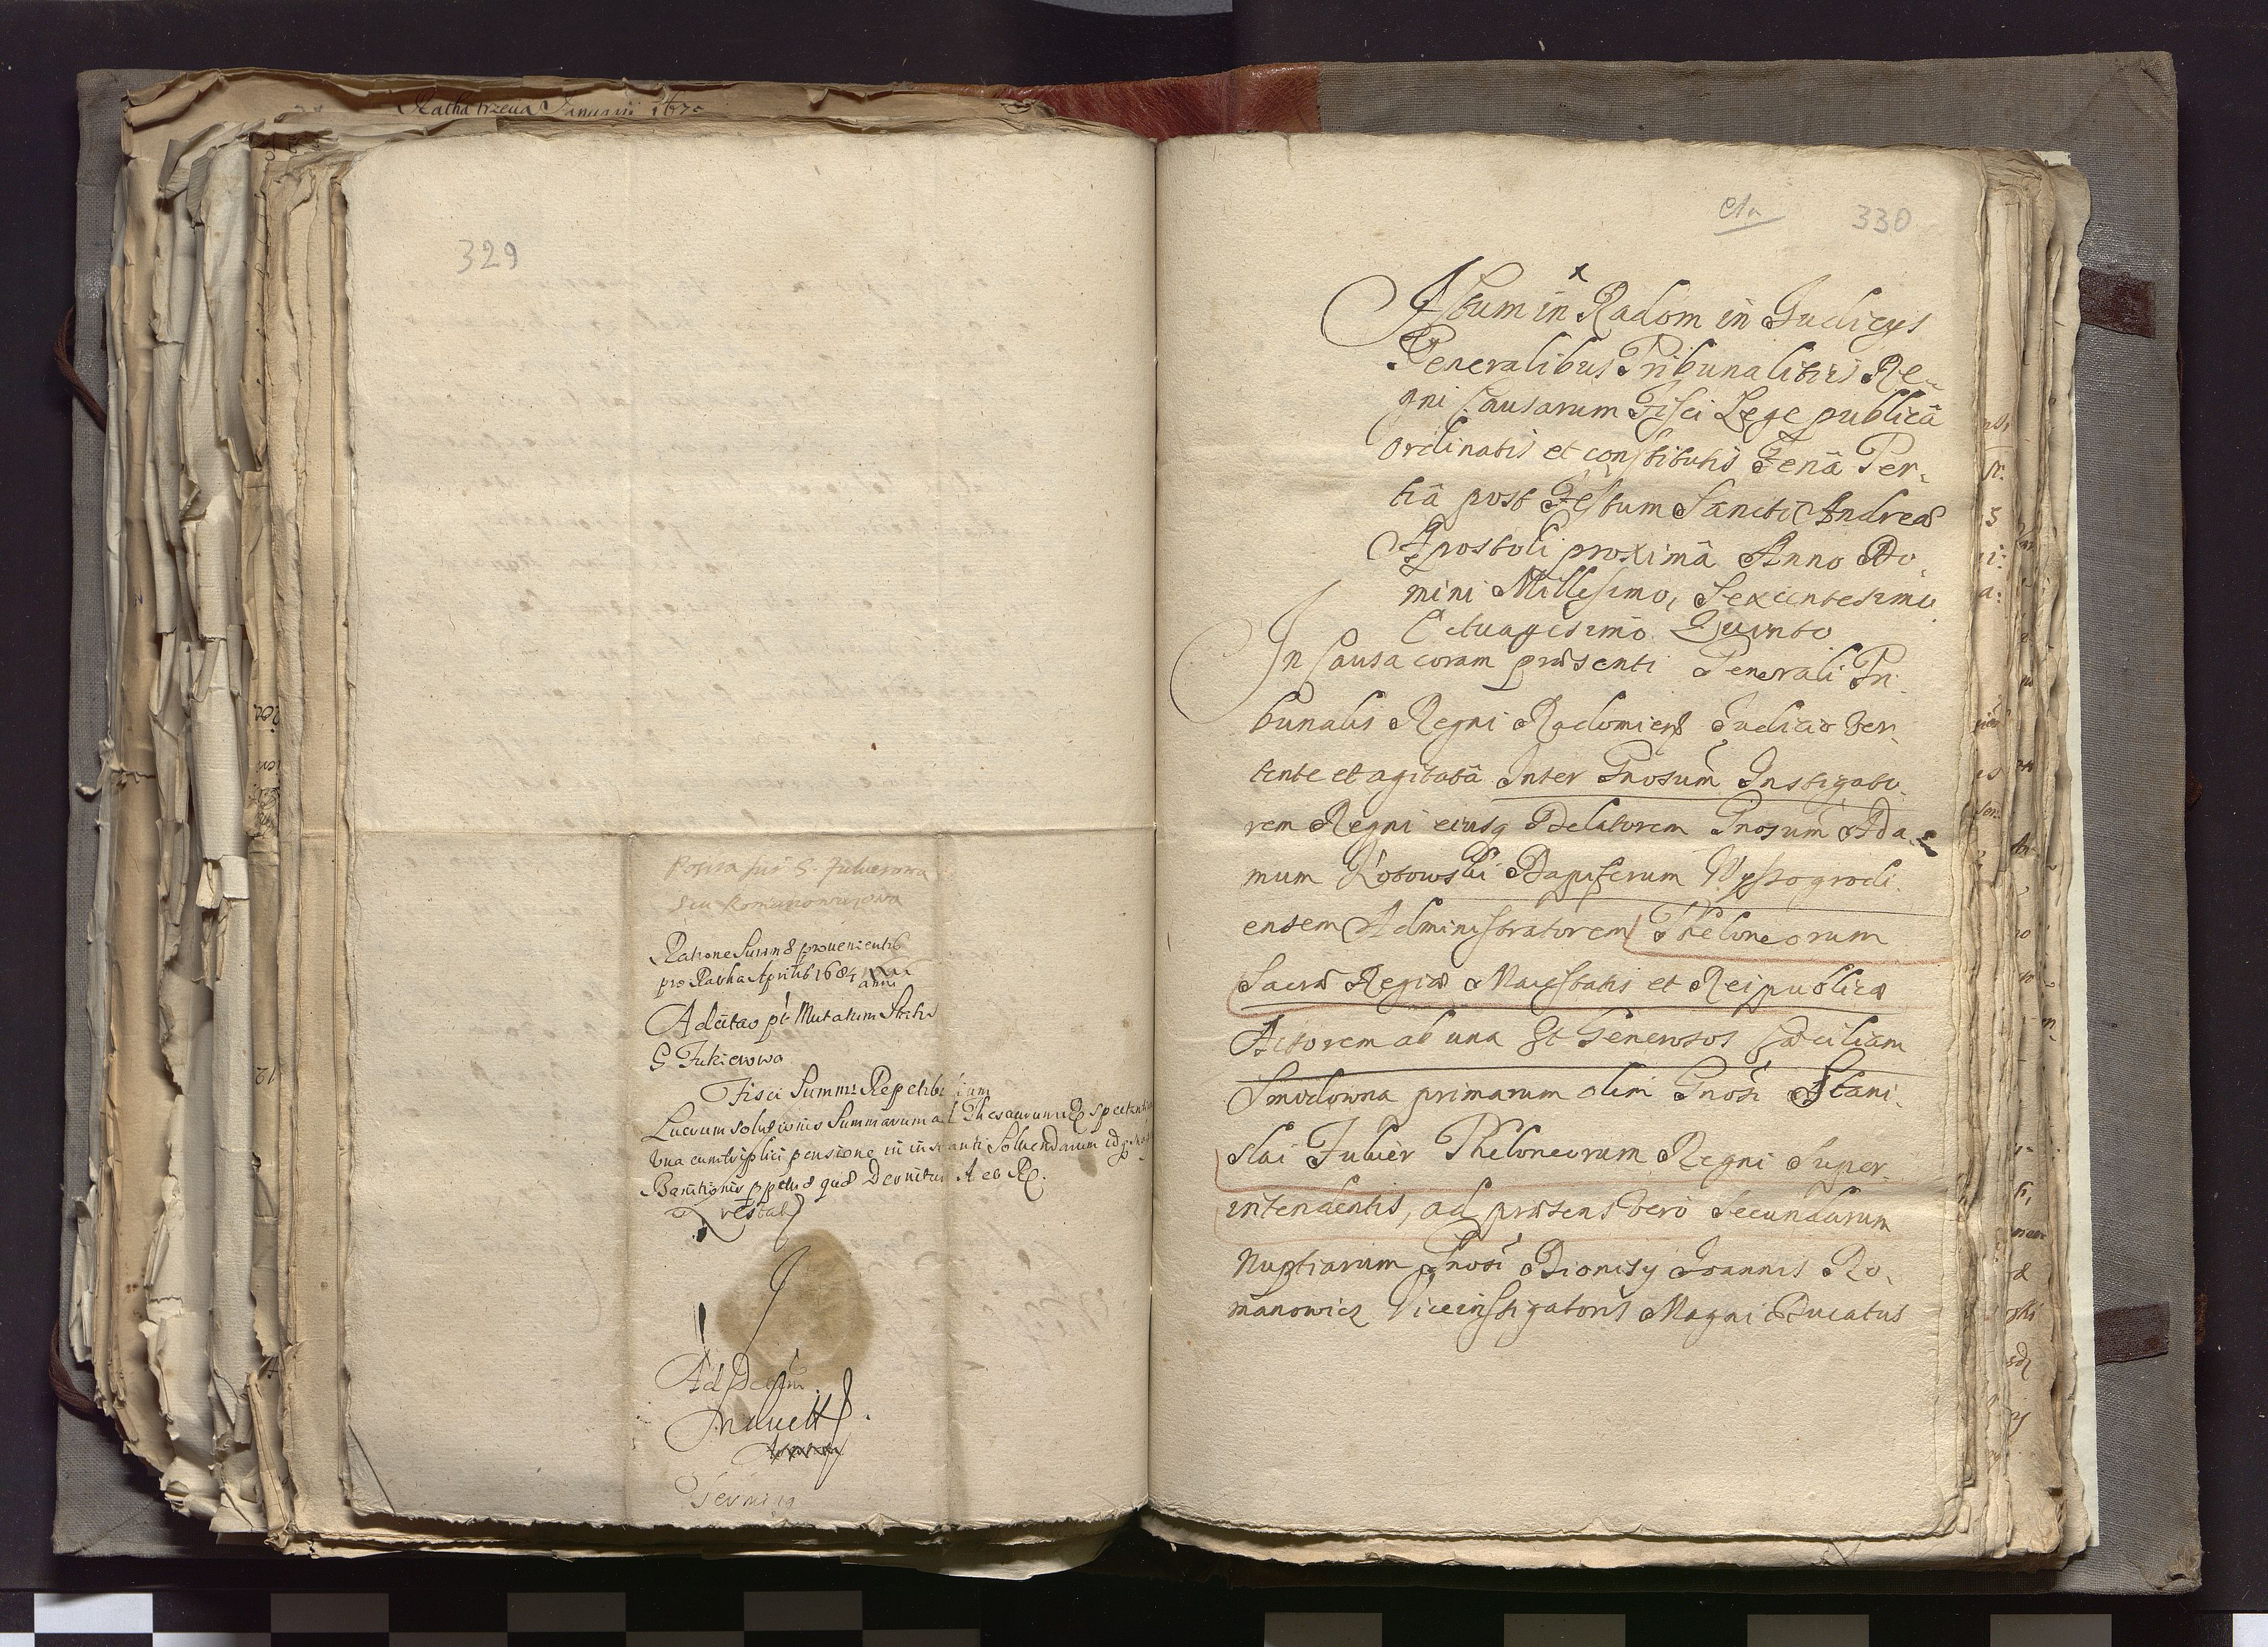 Ratha trzecia Januarii 1675
329
Ratione Summæ prouenientis
pro Ratha Aprilis 1684 anni
Ad citao pt Mutatum Status
G. Fukierowa
Fisci Summæ Repetibilium
Lucrum solutionis Summarum ad Thesaurum R spectantium
Vna cum triplici pensione in instanti Soluendarum idq sub
Banitionis ppetuæ quæ Decernitur A eb R.
restat
Ad Decsm
Germing
330
Actum in Radom in Judicijs
Generalibus Tribunalitijs Re-
gni Causarum Fisci Lege publicâ
ordinatis et constitutis Feriâ Ter-
tiâ post Festum Sancti Andreæ
Apostoli proximâ Anno Do-
mini Millesimo, Sexcentesimo
Octuagesimo Quinto
In Causa coram præsenti Generali Tri-
bunalis Regni Radomiens Judicio ver-
tente et agitatâ Inter Gnosum Instigato-
rem Regni eiusq Delatorem Gnosum Ada-
mum Kotowski Dapiferum Wyszogrodi-
ensem Administratorem Theloneorum
Sacræ Regiæ Maiestatis et Reipublicæ
Actorem ab una Et Generosos Cæciliam
primarum olim Gnosi Stani-
slai Fukier Theloneorum Regni Super-
intendentis, ad præsens vero Secundarum
Nuptiarum Gnosi Dionisy Joannis Ro-
manowicz Viceinstigatoris Magni Ducatus